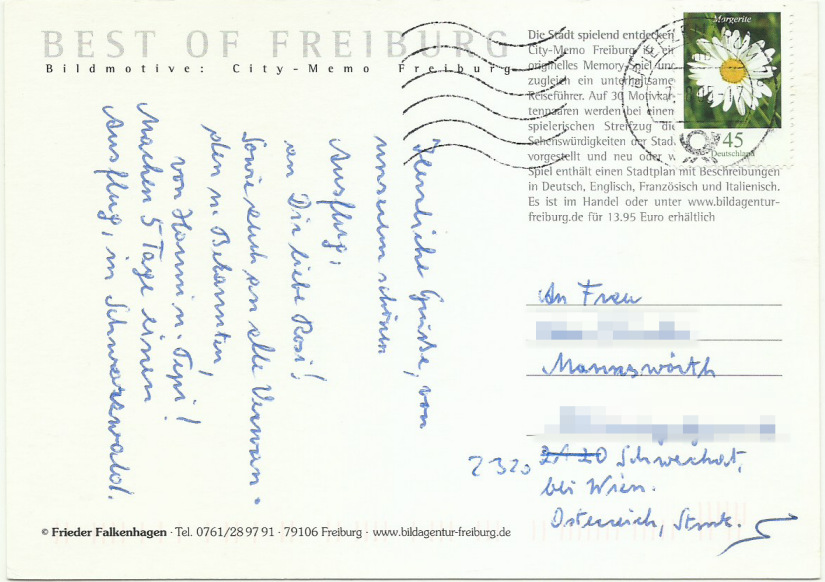 BEST OF FREIBURG
Bildmotive: City-Memo Freiburg
Die Stadt spielend entdecken
City-Memo Freiburg ist ein
originelles Memory-Spiel und
zugleich ein unterhaltsamer
Reiseführer. Auf 30 Motivkar-
tenpaaren werden bei einem
spielerischen Streifzug die
Sehenswürdigkeiten der Stadt
vorgestellt und neu oder
Spiel enthält einen Stadtplan mit Beschreibungen
in Deutsch, Englisch, Französisch und Italienisch.
Es ist im Handel oder unter www.bildagentur-
freiburg.de für 13.95 Euro erhältlich
Morgerite
45
Deutschland
Herrliche Grüße, von
unserem schönen
Ausflug,
an Dir liebe Rosi!
Sowie euch an alle Verwan-
den u. Bekannten,
von Hanni u. Pepi!
Machen 5 Tage einen
Ausflug, in Schwarzwald.
An Frau
Mannswörth
2320 Schwechat,
bei Wien.
Österreich,
© Frieder Falkenhagen · Tel. 0761/28 97 91 · 79106 Freiburg · www.bildagentur-freiburg.de